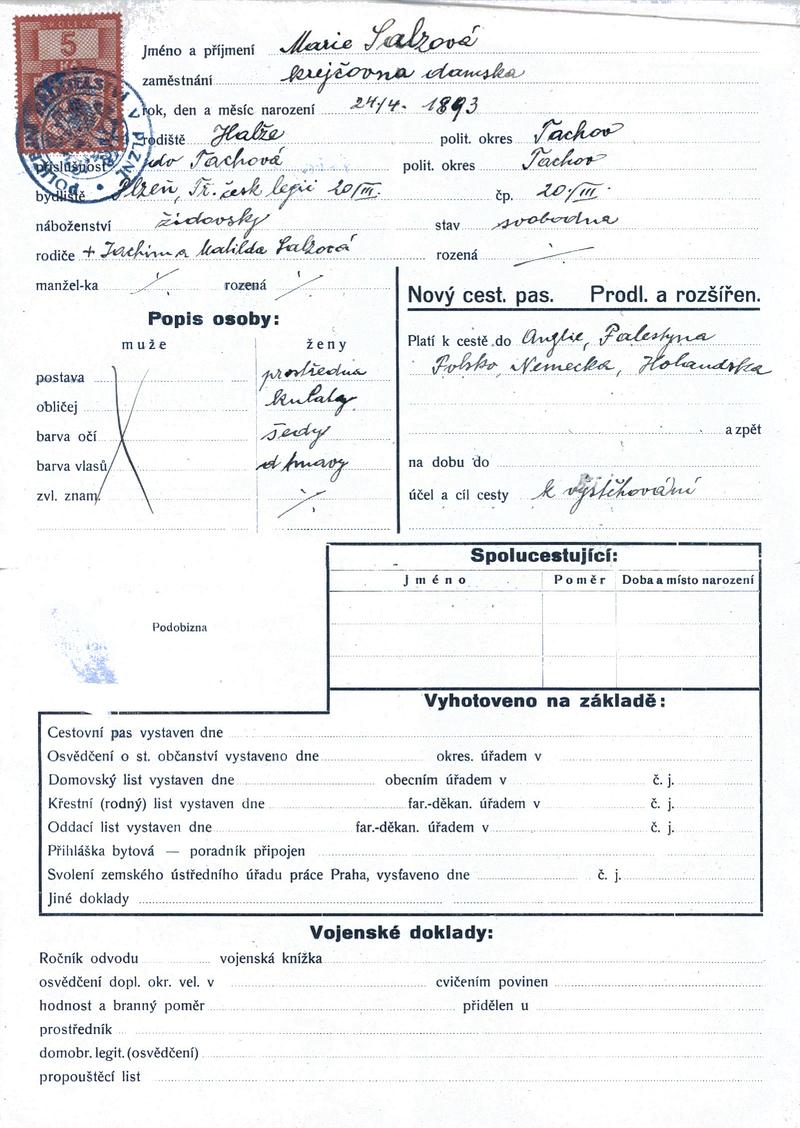 KOLEK
5
Kč
Jméno a příjmení Marie Salzová
zaměstnání krejčovna damska
rok, den a měsíc narození 24/4. 1893
rodiště Halže polit. okres Tachov
příslušnost do Tachová polit. okres Tachov
bydliště Plzeň, Tř. česk legií 20/III. čp. 20/III.
náboženství židovsky stav svobodna
rodiče + Jachim a Matilda Salzová rozená /
manžel-ka / rozená /
Nový cest. pas. Prodl. a rozšířen.
Popis osoby:
muže ženy
postava prostředna
obličej kulaty
barva očí šedy
barva vlasů d tmavy
zvl. znam. /
Platí k cestě do Anglie, Palestyna
Polsko, Nemecka, Holandska
a zpět
na dobu do
účel a cíl cesty k vystěhování
Spolucestující:
Jméno Poměr Doba a místo narození
Podobizna
Vyhotoveno na základě:
Cestovní pas vystaven dne
Osvědčení o st. občanství vystaveno dne okres. úřadem v
Domovský list vystaven dne obecním úřadem v č. j.
Křestní (rodný) list vystaven dne far.-děkan. úřadem v č. j.
Oddací list vystaven dne far.-děkan. úřadem v č. j.
Přihláška bytová — poradník připojen
Svolení zemského ústředního úřadu práce Praha, vystaveno dne č. j.
Jiné doklady
Vojenské doklady:
Ročník odvodu vojenská knížka
osvědčení dopl. okr. vel. v cvičením povinen
hodnost a branný poměr přidělen u
prostředník
domobr. legit. (osvědčení)
propouštěcí list